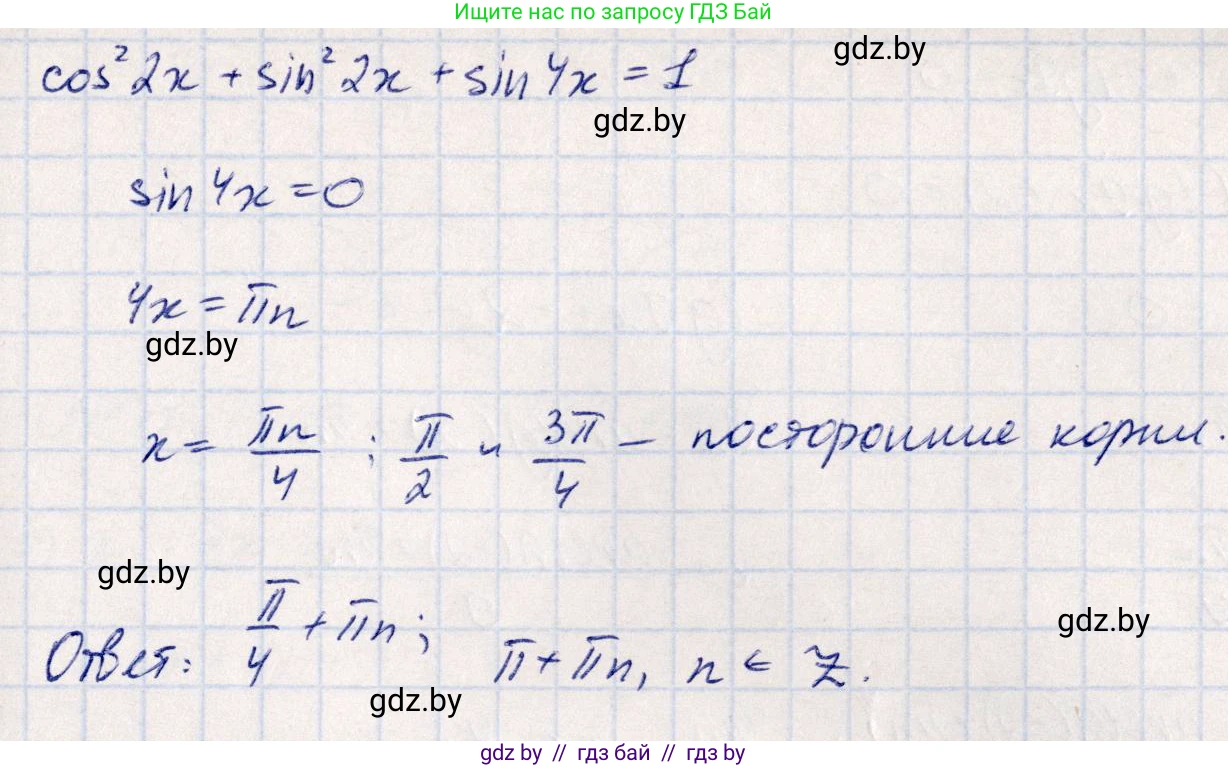 Ищите нас по запросу ГДЗ Бай
cos² 2x + sin² 2x + sin 4x = 1
gdz.by
gdz.by
sin 4x = 0
4x = πn
gdz.by
x = πn/4 ; π/2 и 3π/4 — посторонние корни.
gdz.by
Ответ: π/4 + πn; π + πn, n ∈ Z.
gdz.by
gdz.by
gdz by // гдз бай // гдз by